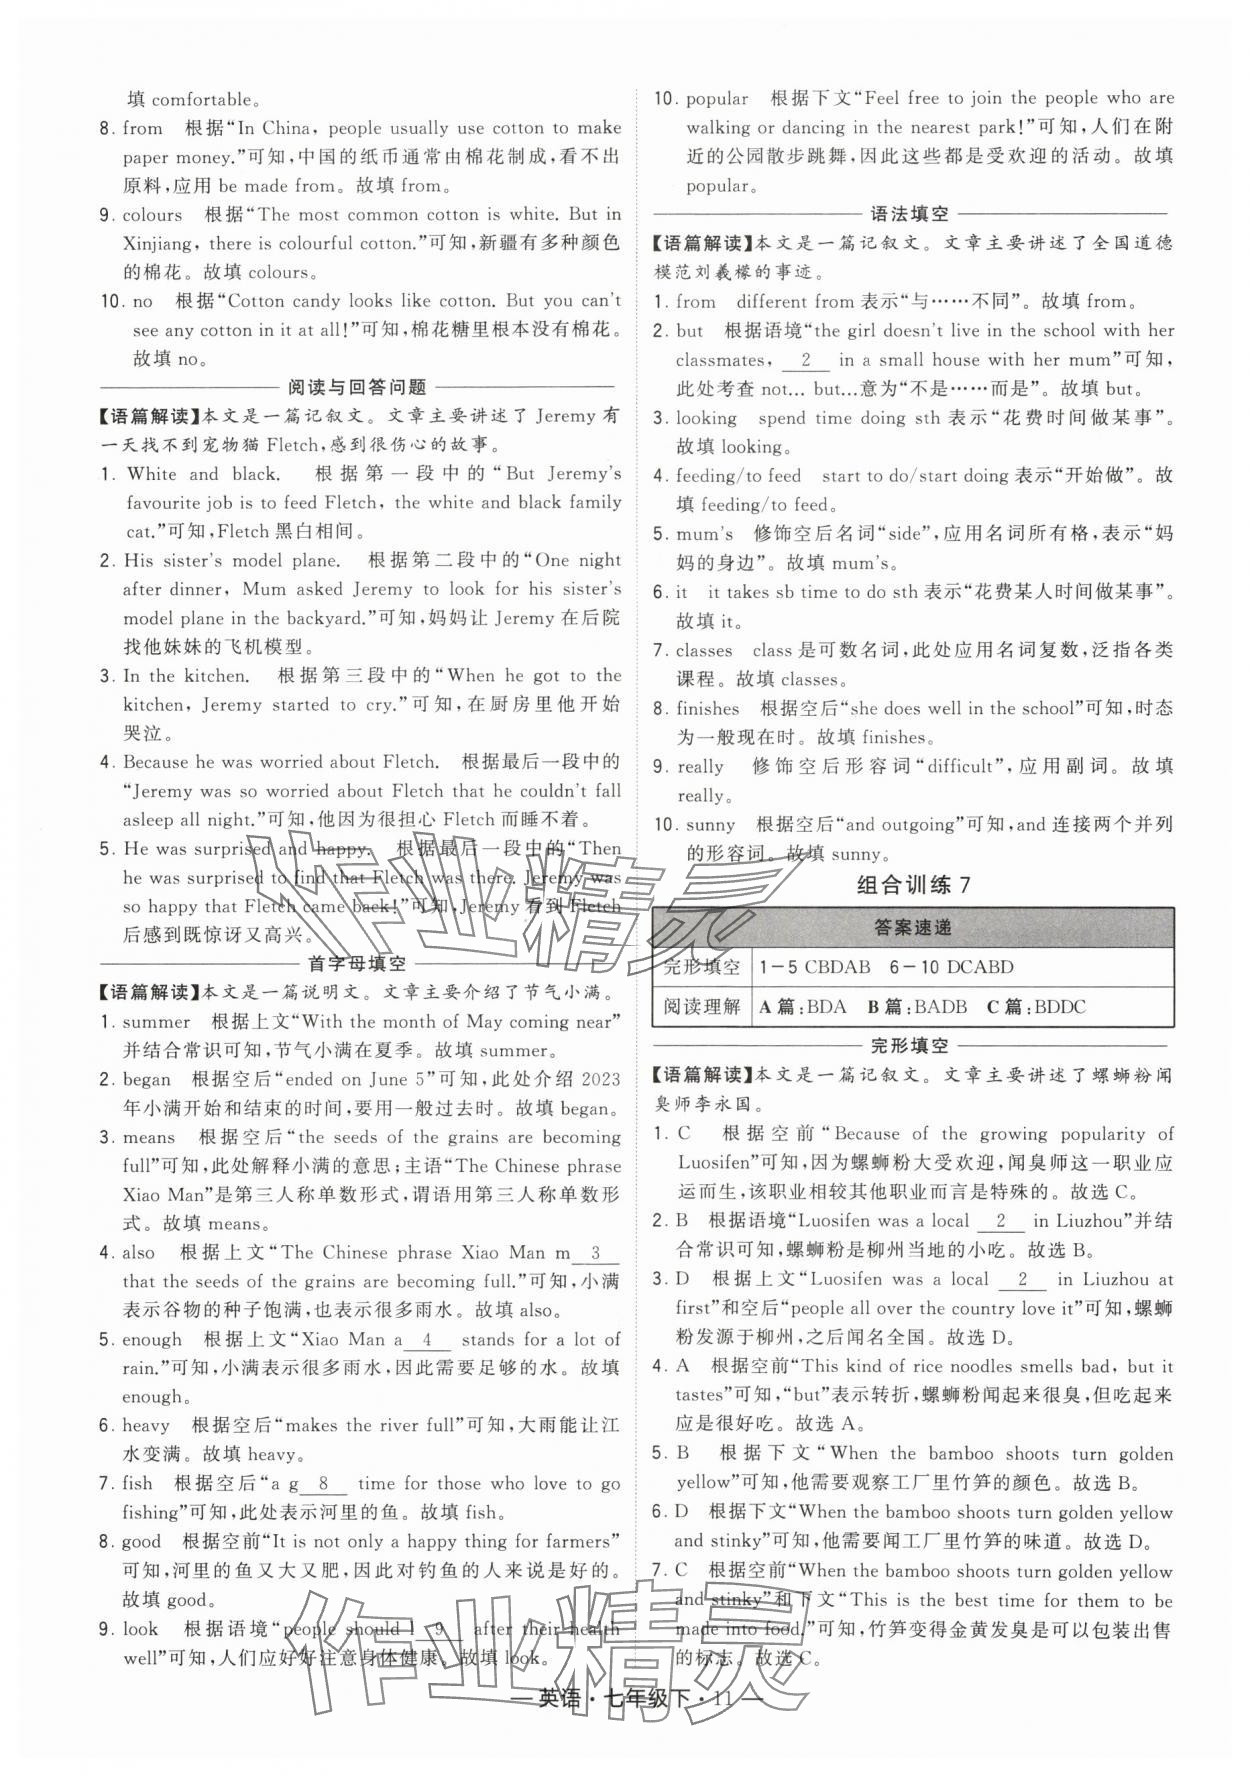 填 comfortable。
8. from 根据“In China, people usually use cotton to make
paper money.”可知,中国的纸币通常由棉花制成,看不出
原料,应用 be made from。故填 from。
9. colours 根据“The most common cotton is white. But in
Xinjiang, there is colourful cotton.”可知,新疆有多种颜色
的棉花。故填 colours。
10. no 根据“Cotton candy looks like cotton. But you can't
see any cotton in it at all!”可知,棉花糖里根本没有棉花。
故填 no。
阅读与回答问题
【语篇解读】本文是一篇记叙文。文章主要讲述了 Jeremy 有
一天找不到宠物猫 Fletch,感到很伤心的故事。
1. White and black. 根据第一段中的“But Jeremy's
favourite job is to feed Fletch, the white and black family
cat.”可知,Fletch 黑白相间。
2. His sister's model plane. 根据第二段中的“One night
after dinner, Mum asked Jeremy to look for his sister's
model plane in the backyard.”可知,妈妈让 Jeremy 在后院
找他妹妹的飞机模型。
3. In the kitchen. 根据第三段中的“When he got to the
kitchen, Jeremy started to cry.”可知,在厨房里他开始
哭泣。
4. Because he was worried about Fletch. 根据最后一段中的
“Jeremy was so worried about Fletch that he couldn't fall
asleep all night.”可知,他因为很担心 Fletch 而睡不着。
5. He was surprised and happy. 根据最后一段中的“Then
he was surprised to find that Fletch was there. Jeremy was
so happy that Fletch came back!”可知,Jeremy 看到 Fletch
后感到既惊讶又高兴。
首字母填空
【语篇解读】本文是一篇说明文。文章主要介绍了节气小满。
1. summer 根据上文“With the month of May coming near”
并结合常识可知,节气小满在夏季。故填 summer。
2. began 根据空后“ended on June 5”可知,此处介绍 2023
年小满开始和结束的时间,要用一般过去时。故填 began。
3. means 根据空后“the seeds of the grains are becoming
full”可知,此处解释小满的意思;主语“The Chinese phrase
Xiao Man”是第三人称单数形式,谓语用第三人称单数形
式。故填 means。
4. also 根据上文“The Chinese phrase Xiao Man m 3
that the seeds of the grains are becoming full.”可知,小满
表示谷物的种子饱满,也表示很多雨水。故填 also。
5. enough 根据上文“Xiao Man a 4 stands for a lot of
rain.”可知,小满表示很多雨水,因此需要足够的水。故填
enough。
6. heavy 根据空后“makes the river full”可知,大雨能让江
水变满。故填 heavy。
7. fish 根据空后“a g 8 time for those who love to go
fishing”可知,此处表示河里的鱼。故填 fish。
8. good 根据空前“It is not only a happy thing for farmers”
可知,河里的鱼又大又肥,因此对钓鱼的人来说是好的。
故填 good。
9. look 根据语境“people should l 9 after their health
well”可知,人们应好好注意身体健康。故填 look。
10. popular 根据下文“Feel free to join the people who are
walking or dancing in the nearest park!”可知,人们在附
近的公园散步跳舞,因此这些都是受欢迎的活动。故填
popular。
语法填空
【语篇解读】本文是一篇记叙文。文章主要讲述了全国道德
模范刘羲檬的事迹。
1. from different from 表示“与……不同”。故填 from。
2. but 根据语境“the girl doesn't live in the school with her
classmates, 2 in a small house with her mum”可知,
此处考查 not... but...意为“不是……而是”。故填 but。
3. looking spend time doing sth 表示“花费时间做某事”。
故填 looking。
4. feeding/to feed start to do/start doing 表示“开始做”。故
填 feeding/to feed。
5. mum's 修饰空后名词“side”,应用名词所有格,表示“妈
妈的身边”。故填 mum's。
6. it it takes sb time to do sth 表示“花费某人时间做某事”。
故填 it。
7. classes class 是可数名词,此处应用名词复数,泛指各类
课程。故填 classes。
8. finishes 根据空后“she does well in the school”可知,时态
为一般现在时。故填 finishes。
9. really 修饰空后形容词“difficult”,应用副词。故填
really。
10. sunny 根据空后“and outgoing”可知,and 连接两个并列
的形容词。故填 sunny。
组合训练 7
答案速递
完形填空 1-5 CBDAB 6-10 DCABD
阅读理解 A 篇:BDA B 篇:BADB C 篇:BDDC
完形填空
【语篇解读】本文是一篇记叙文。文章主要讲述了螺蛳粉闻
臭师李永国。
1. C 根据空前“Because of the growing popularity of
Luosifen”可知,因为螺蛳粉大受欢迎,闻臭师这一职业应
运而生,该职业相较其他职业而言是特殊的。故选 C。
2. B 根据语境“Luosifen was a local 2 in Liuzhou”并结
合常识可知,螺蛳粉是柳州当地的小吃。故选 B。
3. D 根据上文“Luosifen was a local 2 in Liuzhou at
first”和空后“people all over the country love it”可知,螺蛳
粉发源于柳州,之后闻名全国。故选 D。
4. A 根据空前“This kind of rice noodles smells bad, but it
tastes”可知,“but”表示转折,螺蛳粉闻起来很臭,但吃起来
应是很好吃。故选 A。
5. B 根据下文“When the bamboo shoots turn golden
yellow”可知,他需要观察工厂里竹笋的颜色。故选 B。
6. D 根据下文“When the bamboo shoots turn golden yellow
and stinky”可知,他需要闻工厂里竹笋的味道。故选 D。
7. C 根据空前“When the bamboo shoots turn golden yellow
and stinky”和下文“This is the best time for them to be
made into food.”可知,竹笋变得金黄发臭是可以包装出售
的标志。故选 C。
— 英语·七年级下·11 —
作业精灵
作业精灵